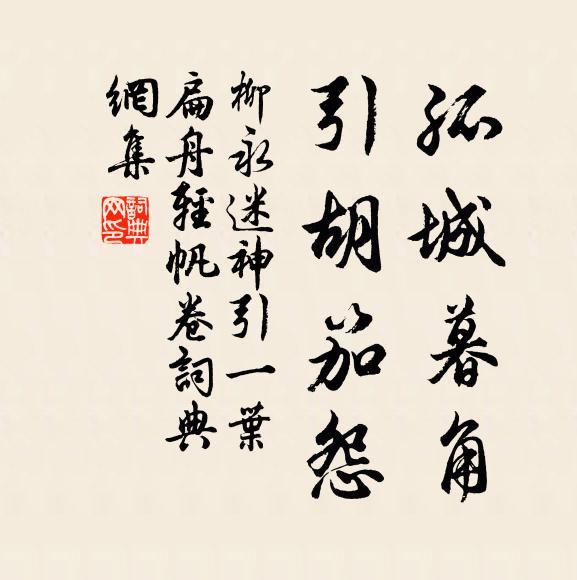 孤城暮角
引胡笳怨
柳永迷神引一葉
扁舟輕帆卷詞典
網集
詞典
网印